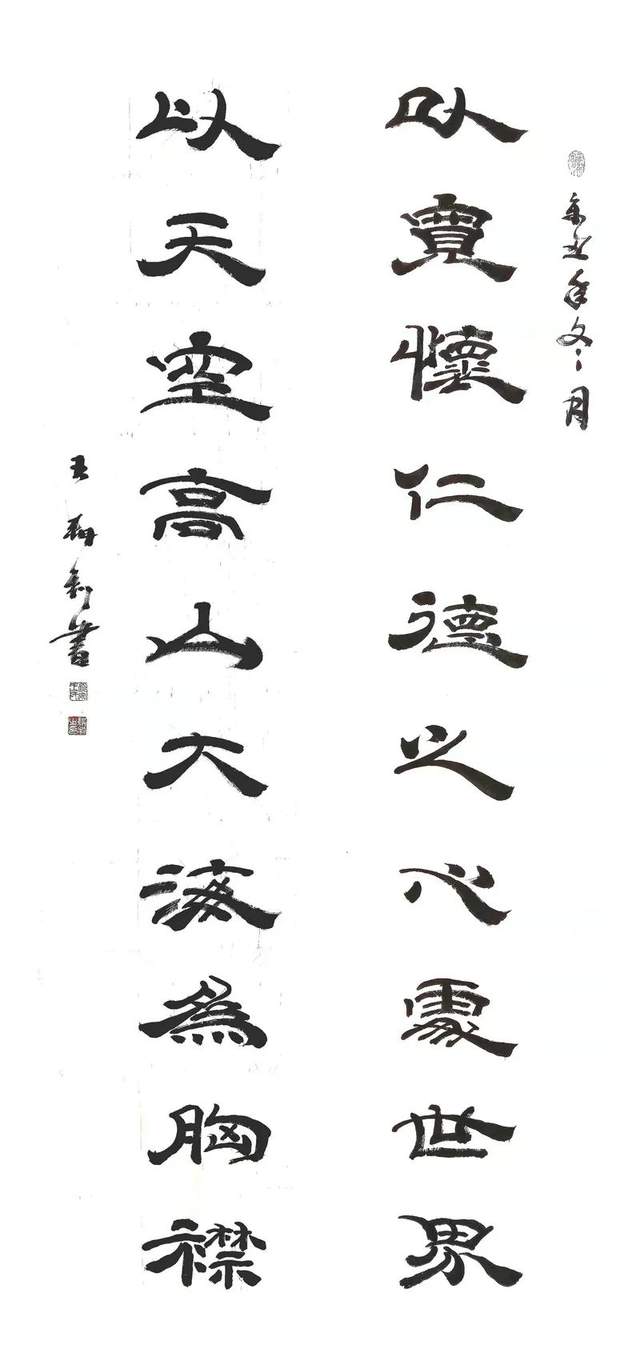 辛丑年冬月
以寬懷仁德之心處世界
以天空高山大海為胸襟
王 利書